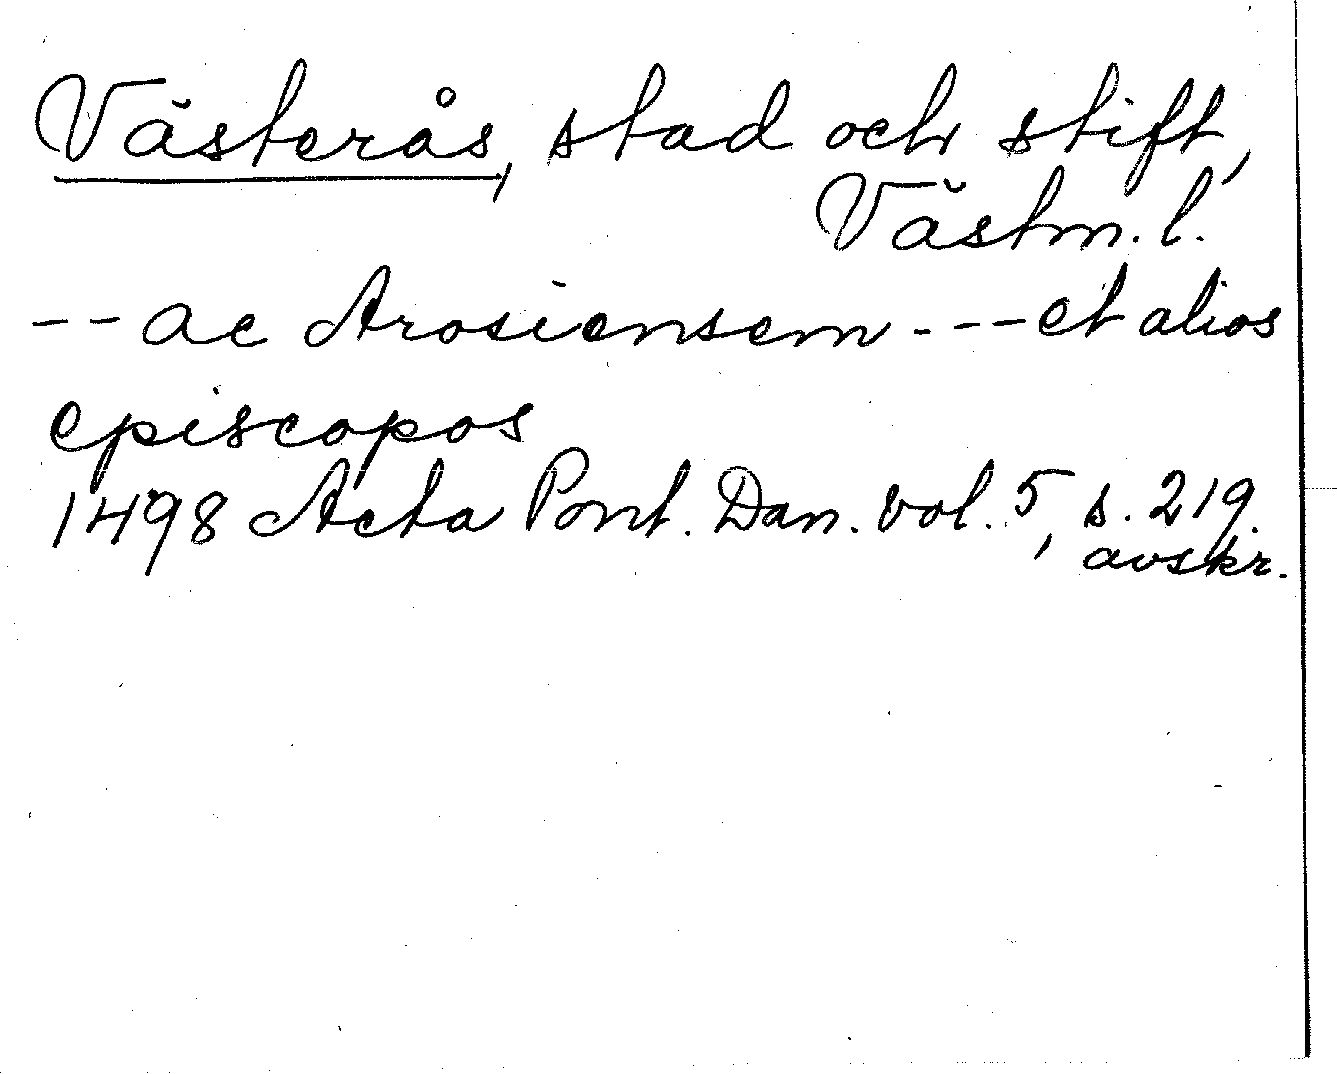 Västerås, stad och stift,
Västm. l.
-- ac Arosiensem --- et alios
episcopos
1498 Acta Pont. Dan. vol. 5, s. 219.
avskr.